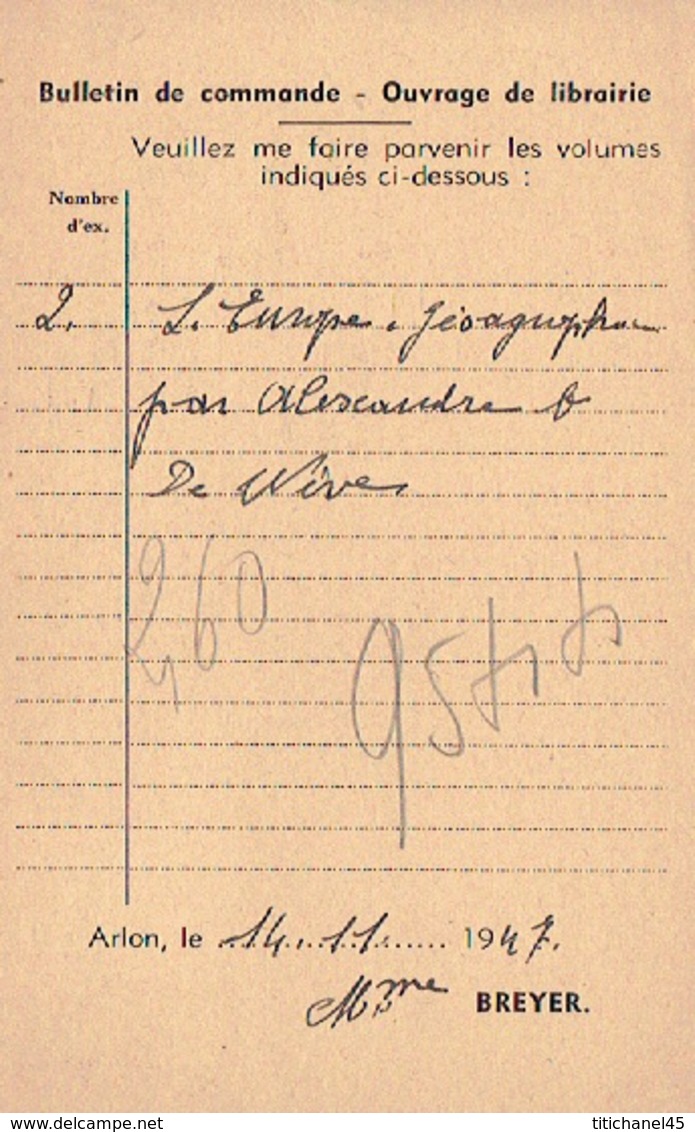 Bulletin de commande - Ouvrage de librairie
Veuillez me faire parvenir les volumes
indiqués ci-dessous :
Nombre
d'ex.
2. L'Europe
par Alexandre
De
260
95
Arlon, le 14.11. 1947.
Mme BREYER.
www.delcampe.net titichanel45